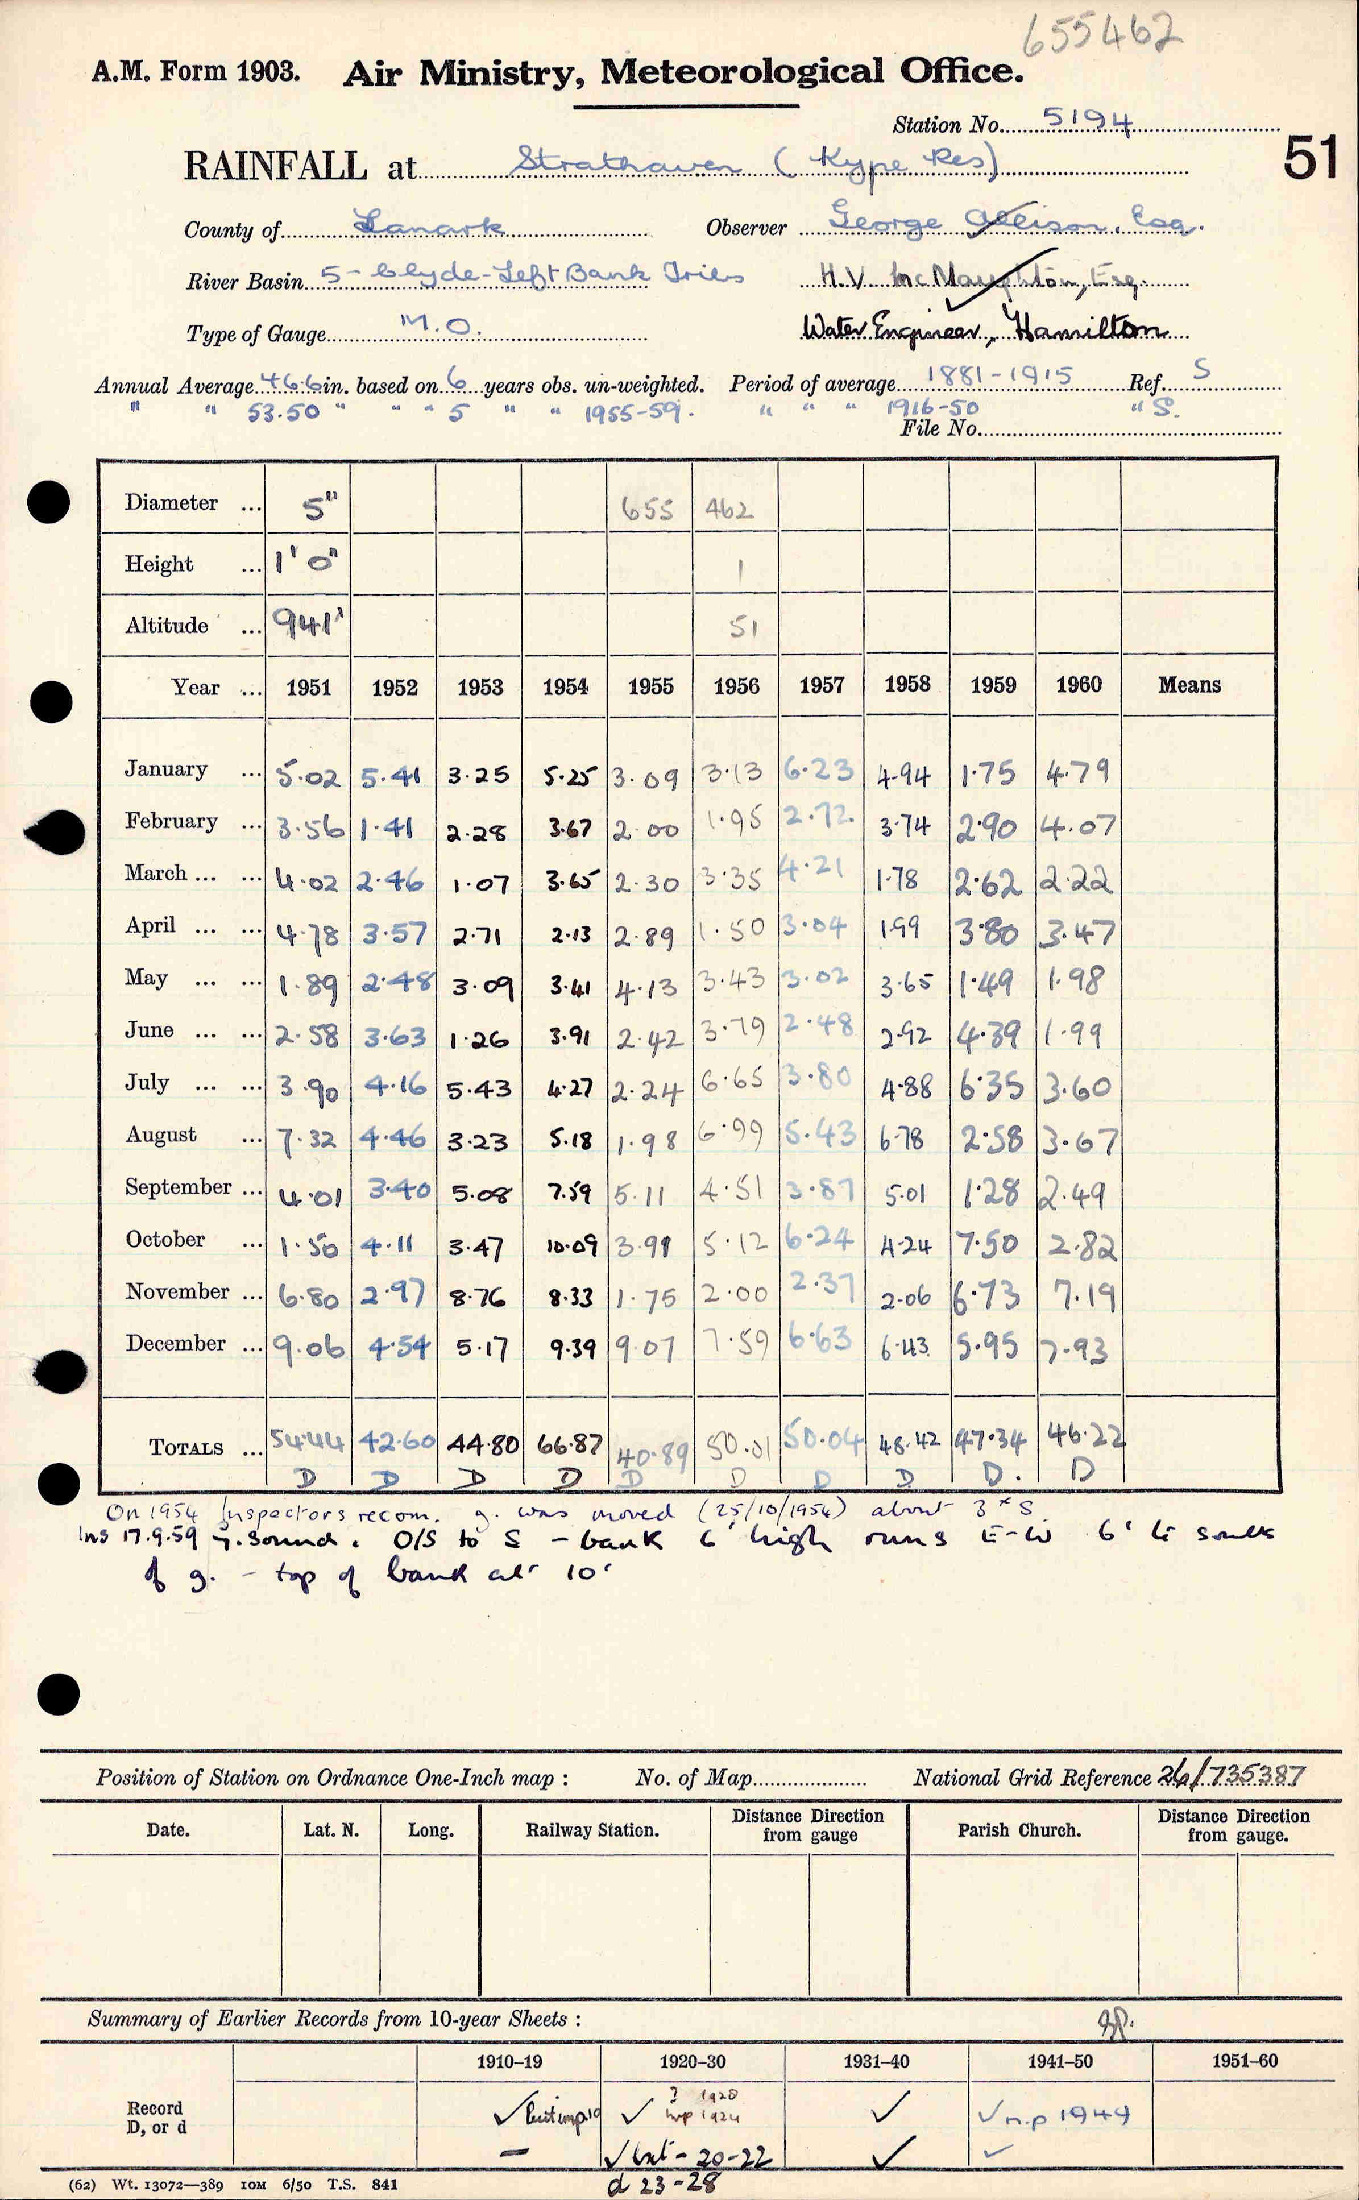 655462
A.M. Form 1903. Air Ministry, Meteorological Office.
Station No. 5194
51
RAINFALL at Strathaven (Kype Res)
County of Lanark Observer George Allison, Esq.
River Basin 5 - Clyde - Left Bank Tribs H.V. McNaughton, Esq.
Type of Gauge M.O. Water Engineer, Hamilton
Annual Average 46.6 in. based on 6 years obs. un-weighted. Period of average 1881-1915 Ref. S
" " 53.50 " " " 5 " " 1955-59. " " " 1916-50 " S.
File No.
Diameter ... 5" 655 462
Height ... 1' 0" 1
Altitude ... 941' 51
Year ... 1951 1952 1953 1954 1955 1956 1957 1958 1959 1960 Means
January ... 5.02 5.41 3.25 5.25 3.09 3.13 6.23 4.94 1.75 4.79
February ... 3.56 1.41 2.28 3.67 2.00 1.95 2.72 3.74 2.90 4.07
March ... ... 4.02 2.46 1.07 3.65 2.30 3.35 4.21 1.78 2.62 2.22
April ... ... 4.78 3.57 2.71 2.13 2.89 1.50 3.04 1.99 3.80 3.47
May ... ... 1.89 2.48 3.09 3.41 4.13 3.43 3.02 3.65 1.49 1.98
June ... ... 2.58 3.63 1.26 3.91 2.42 3.79 2.48 2.92 4.39 1.99
July ... ... 3.90 4.16 5.43 4.27 2.24 6.65 3.80 4.88 6.35 3.60
August ... 7.32 4.46 3.23 5.18 1.98 6.99 5.43 6.78 2.58 3.67
September ... 4.01 3.40 5.08 7.59 5.11 4.51 3.87 5.01 1.28 2.49
October ... 1.50 4.11 3.47 10.09 3.91 5.12 6.24 4.24 7.50 2.82
November ... 6.80 2.97 8.76 8.33 1.75 2.00 2.37 2.06 6.73 7.19
December ... 9.06 4.54 5.17 9.39 9.07 7.59 6.63 6.43 5.95 7.93
TOTALS ... 54.44 42.60 44.80 66.87 40.89 50.01 50.04 48.42 47.34 46.22
D D D D D D D D D. D
On 1954 Inspectors recom. g. was moved (25/10/1954) about 3 x S.
Ins 17.9.59 g. sound. O/S to S - bank 6' high runs E-W 6' to south
of g. - top of bank at 10'
Position of Station on Ordnance One-Inch map : No. of Map National Grid Reference 26/735387
Date. Lat. N. Long. Railway Station. Distance from gauge Direction Parish Church. Distance Direction from gauge.
Summary of Earlier Records from 10-year Sheets :
1910–19 1920–30 1931–40 1941–50 1951–60
Record D, or d ✓ but imp 19 ✓ ? 1920 imp 1924 ✓ ✓ n.p 1949
– ✓ 20-22 ✓ ✓
d 23-28
(62) Wt. 13072—389 10M 6/50 T.S. 841